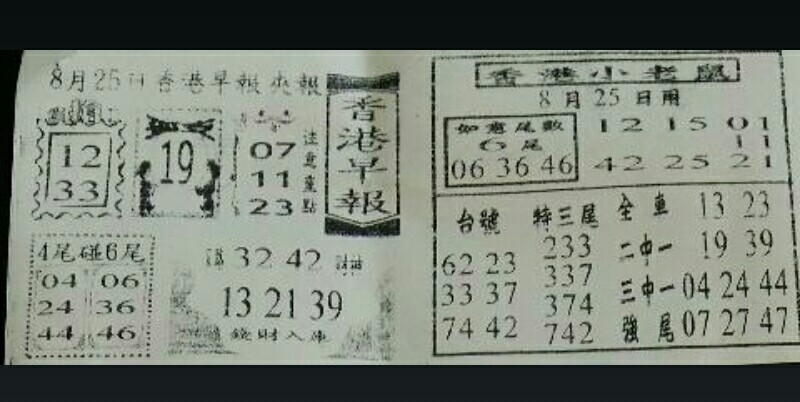 8月25日香港早報夾報
香港早報
12
33
19
07
11
23
注意重點
4尾碰6尾
04 06
24 36
44 46
32 42
13 21 39
錢財入庫
香港小老鼠
8月25日用
如意尾數
6尾
06 36 46
12 15 01
11
42 25 21
台號 特三尾 全車 13 23
62 23 233 二中一 19 39
33 37 337 三中一 04 24 44
74 42 374 強尾 07 27 47
742